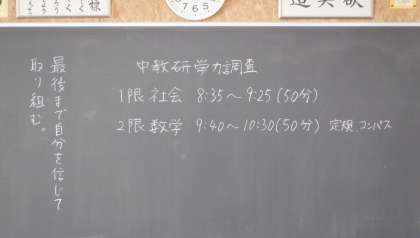 中教研学力調査
1限 社会 8:35～9:25(50分)
2限 数学 9:40～10:30(50分) 定規、コンパス
最後まで自分を信じて
取り組む。
7 6 5